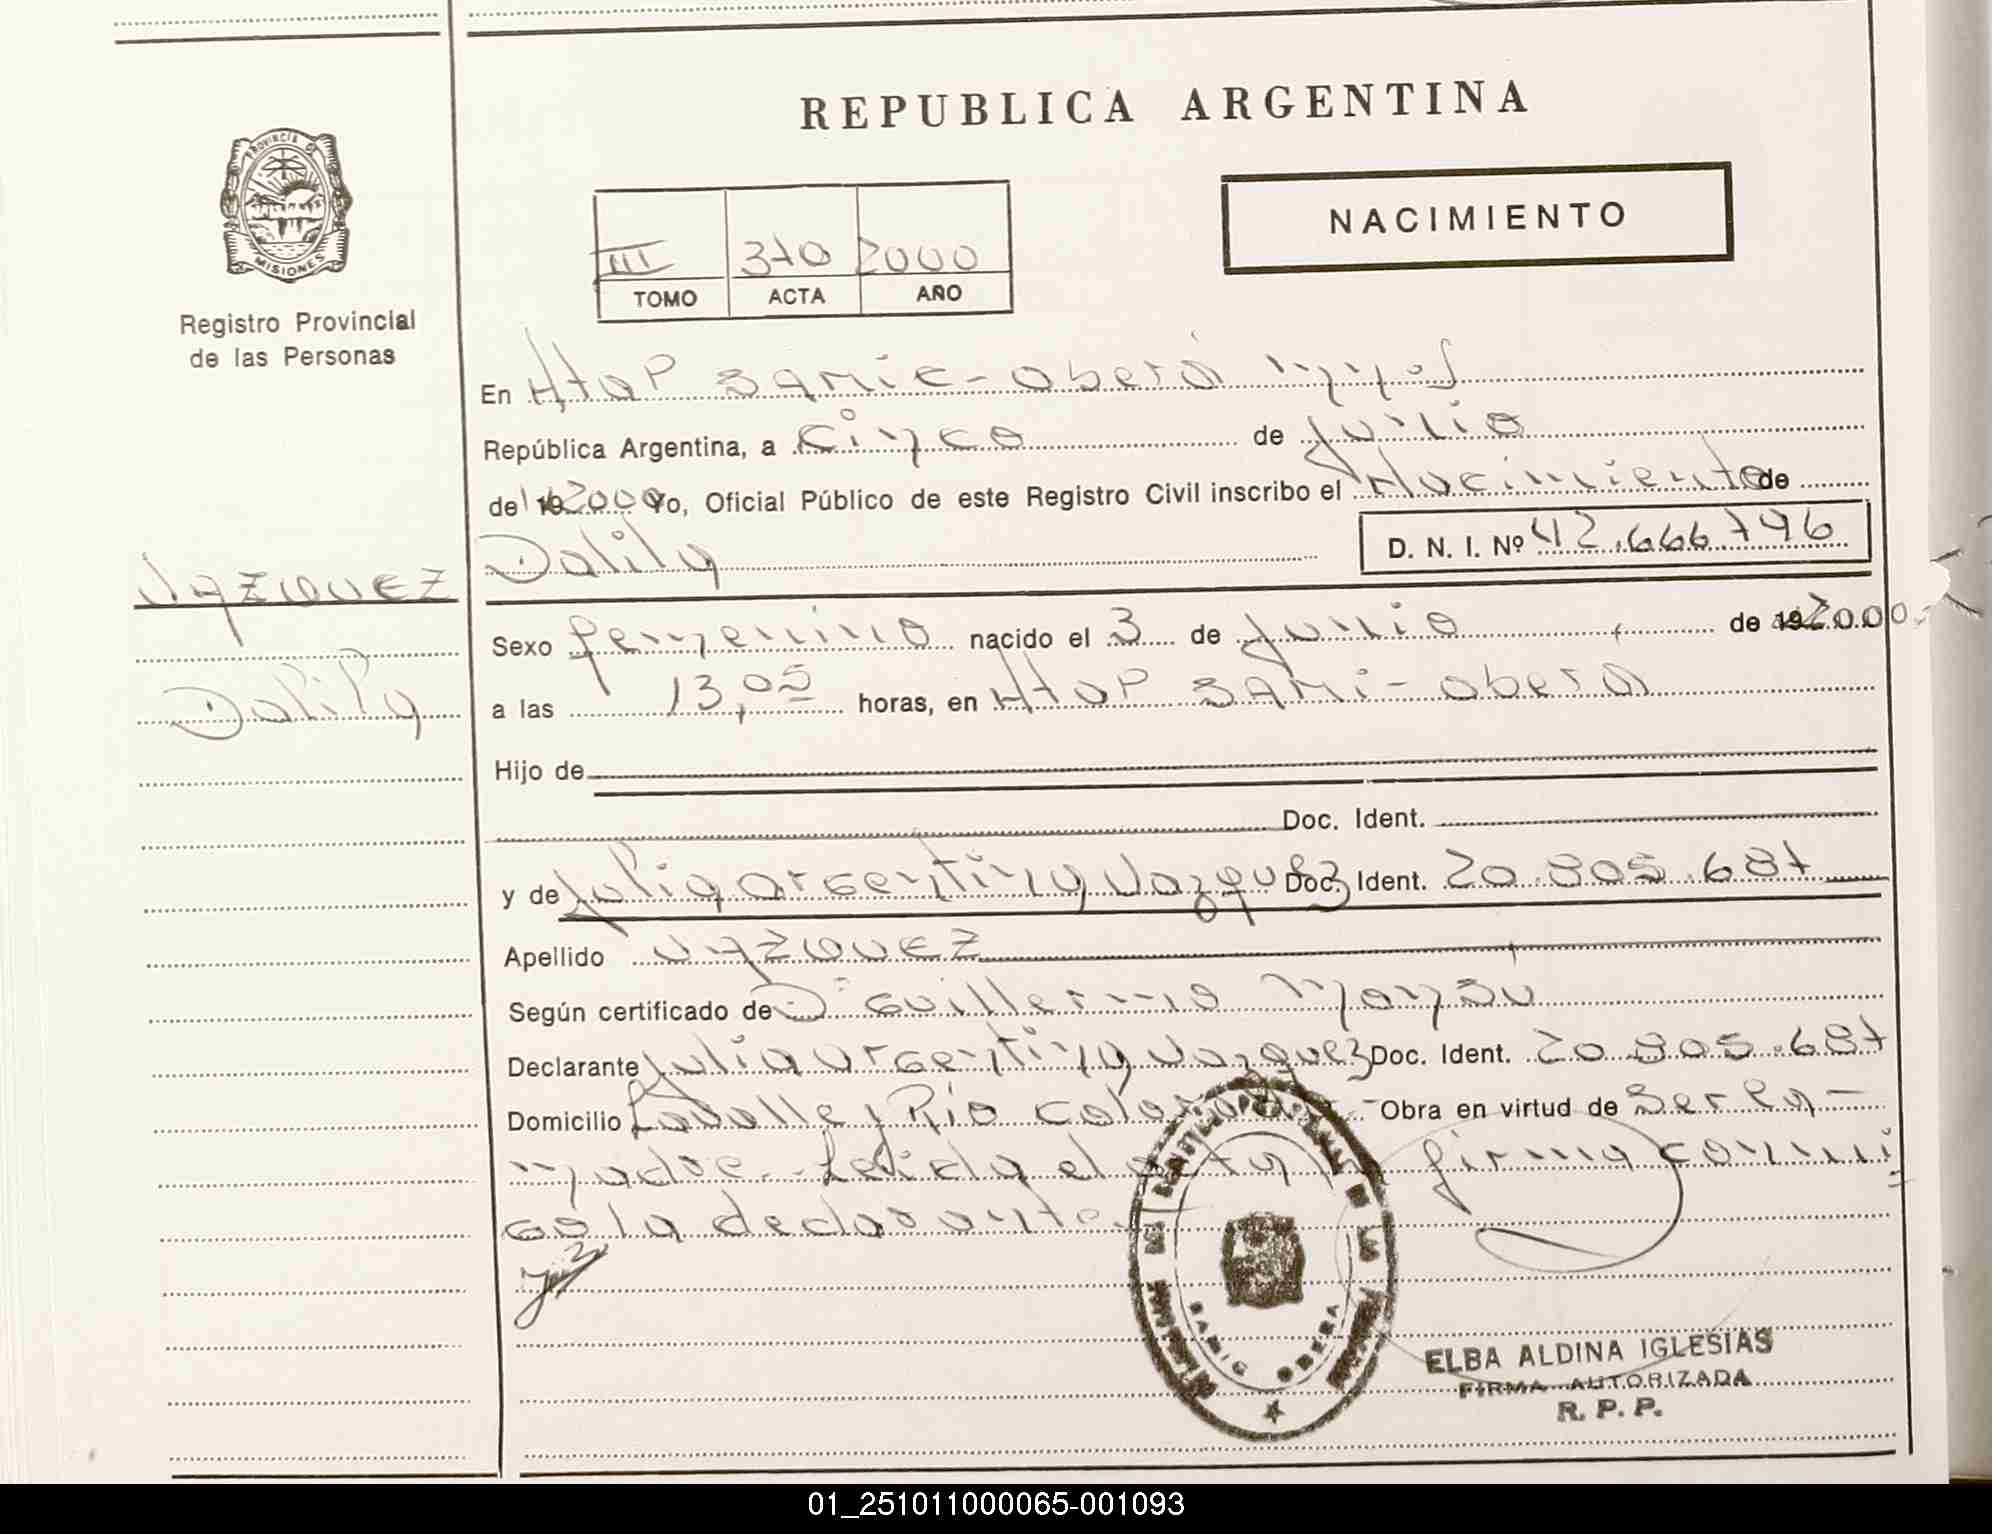 REPUBLICA ARGENTINA
PROVINCIA DE
MISIONES
Registro Provincial
de las Personas
NACIMIENTO
III 370 2000
TOMO ACTA AÑO
En Htap SAMIC - oberá
República Argentina, a cinco de Julio
de 19 2000 Yo, Oficial Público de este Registro Civil inscribo el Nacimiento de
Dalila D. N. I. Nº 42.666.796
VAZQUEZ
Dalila
Sexo femenino nacido el 3 de Junio de 19 2000.-
a las 13,05 horas, en Htap SAMI - oberá
Hijo de
Doc. Ident.
y de Julia argentina Vazquez Doc. Ident. 20.805.687
Apellido VAZQUEZ
Según certificado de Guillermo
Declarante Julia argentina Vazquez Doc. Ident. 20.805.687
Domicilio Lavalle y Río Obra en virtud de Ser la
madre. Leida el acta firma conmi
go la declarante.
SAMIC OBERA
ELBA ALDINA IGLESIAS
FIRMA AUTORIZADA
R. P. P.
01_251011000065-001093